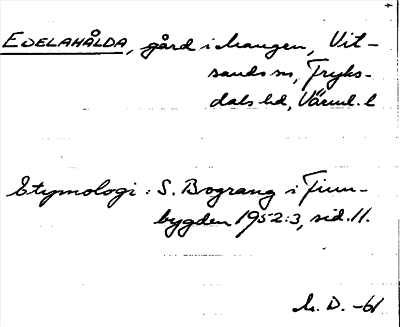 EDELAHÅLDA, gård i Mangen, Vit-
sands sn, Fryks-
dals hd, Värml. l
Etymologi: S. Bograng i Finn-
bygden 1952:3, sid. 11.
M. D. -61